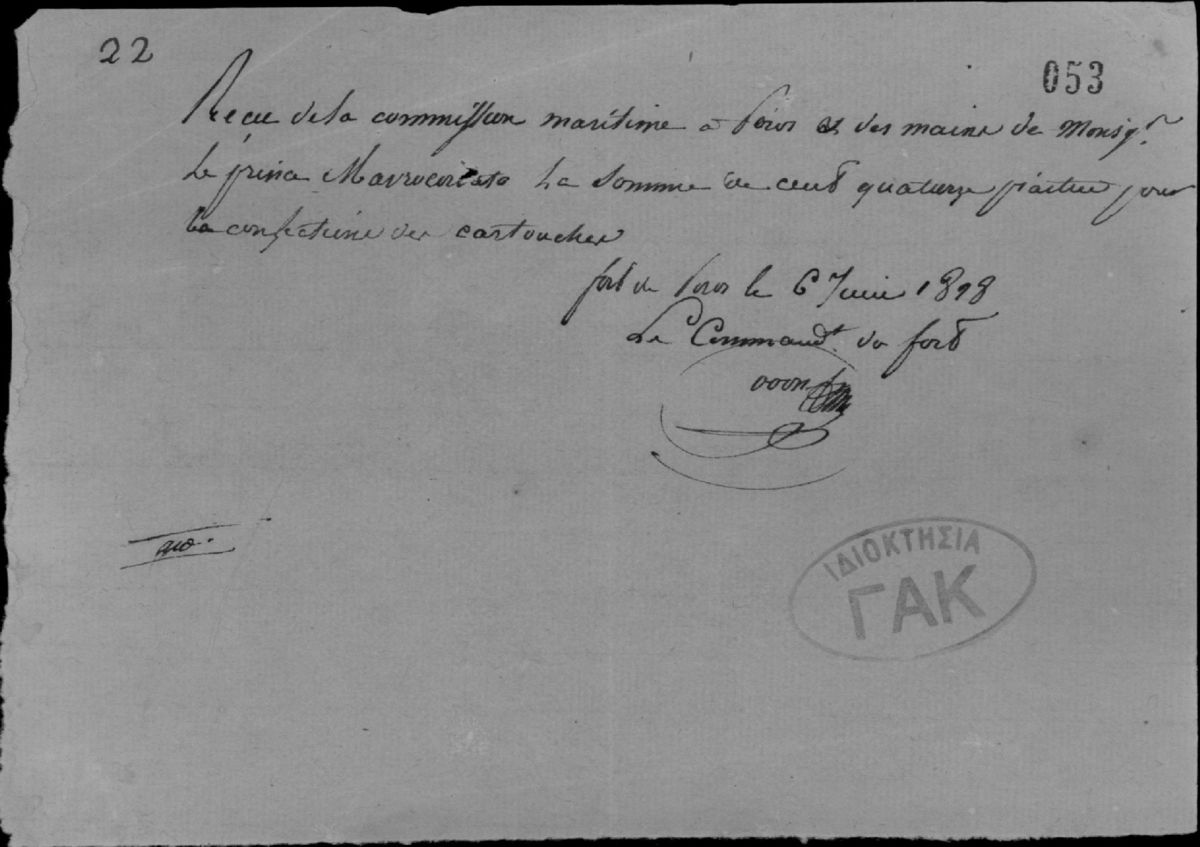 22
053
Reçu de la commission maritime a Poros et des mains de Monsgr
le prince Mavrocordato la somme de cent quatorze piastre pour
la confectione des cartouches
fort de Poros le 6 Juin 1828
Le Commandt du fort
ΙΔΙΟΚΤΗΣΙΑ
ΓΑΚ